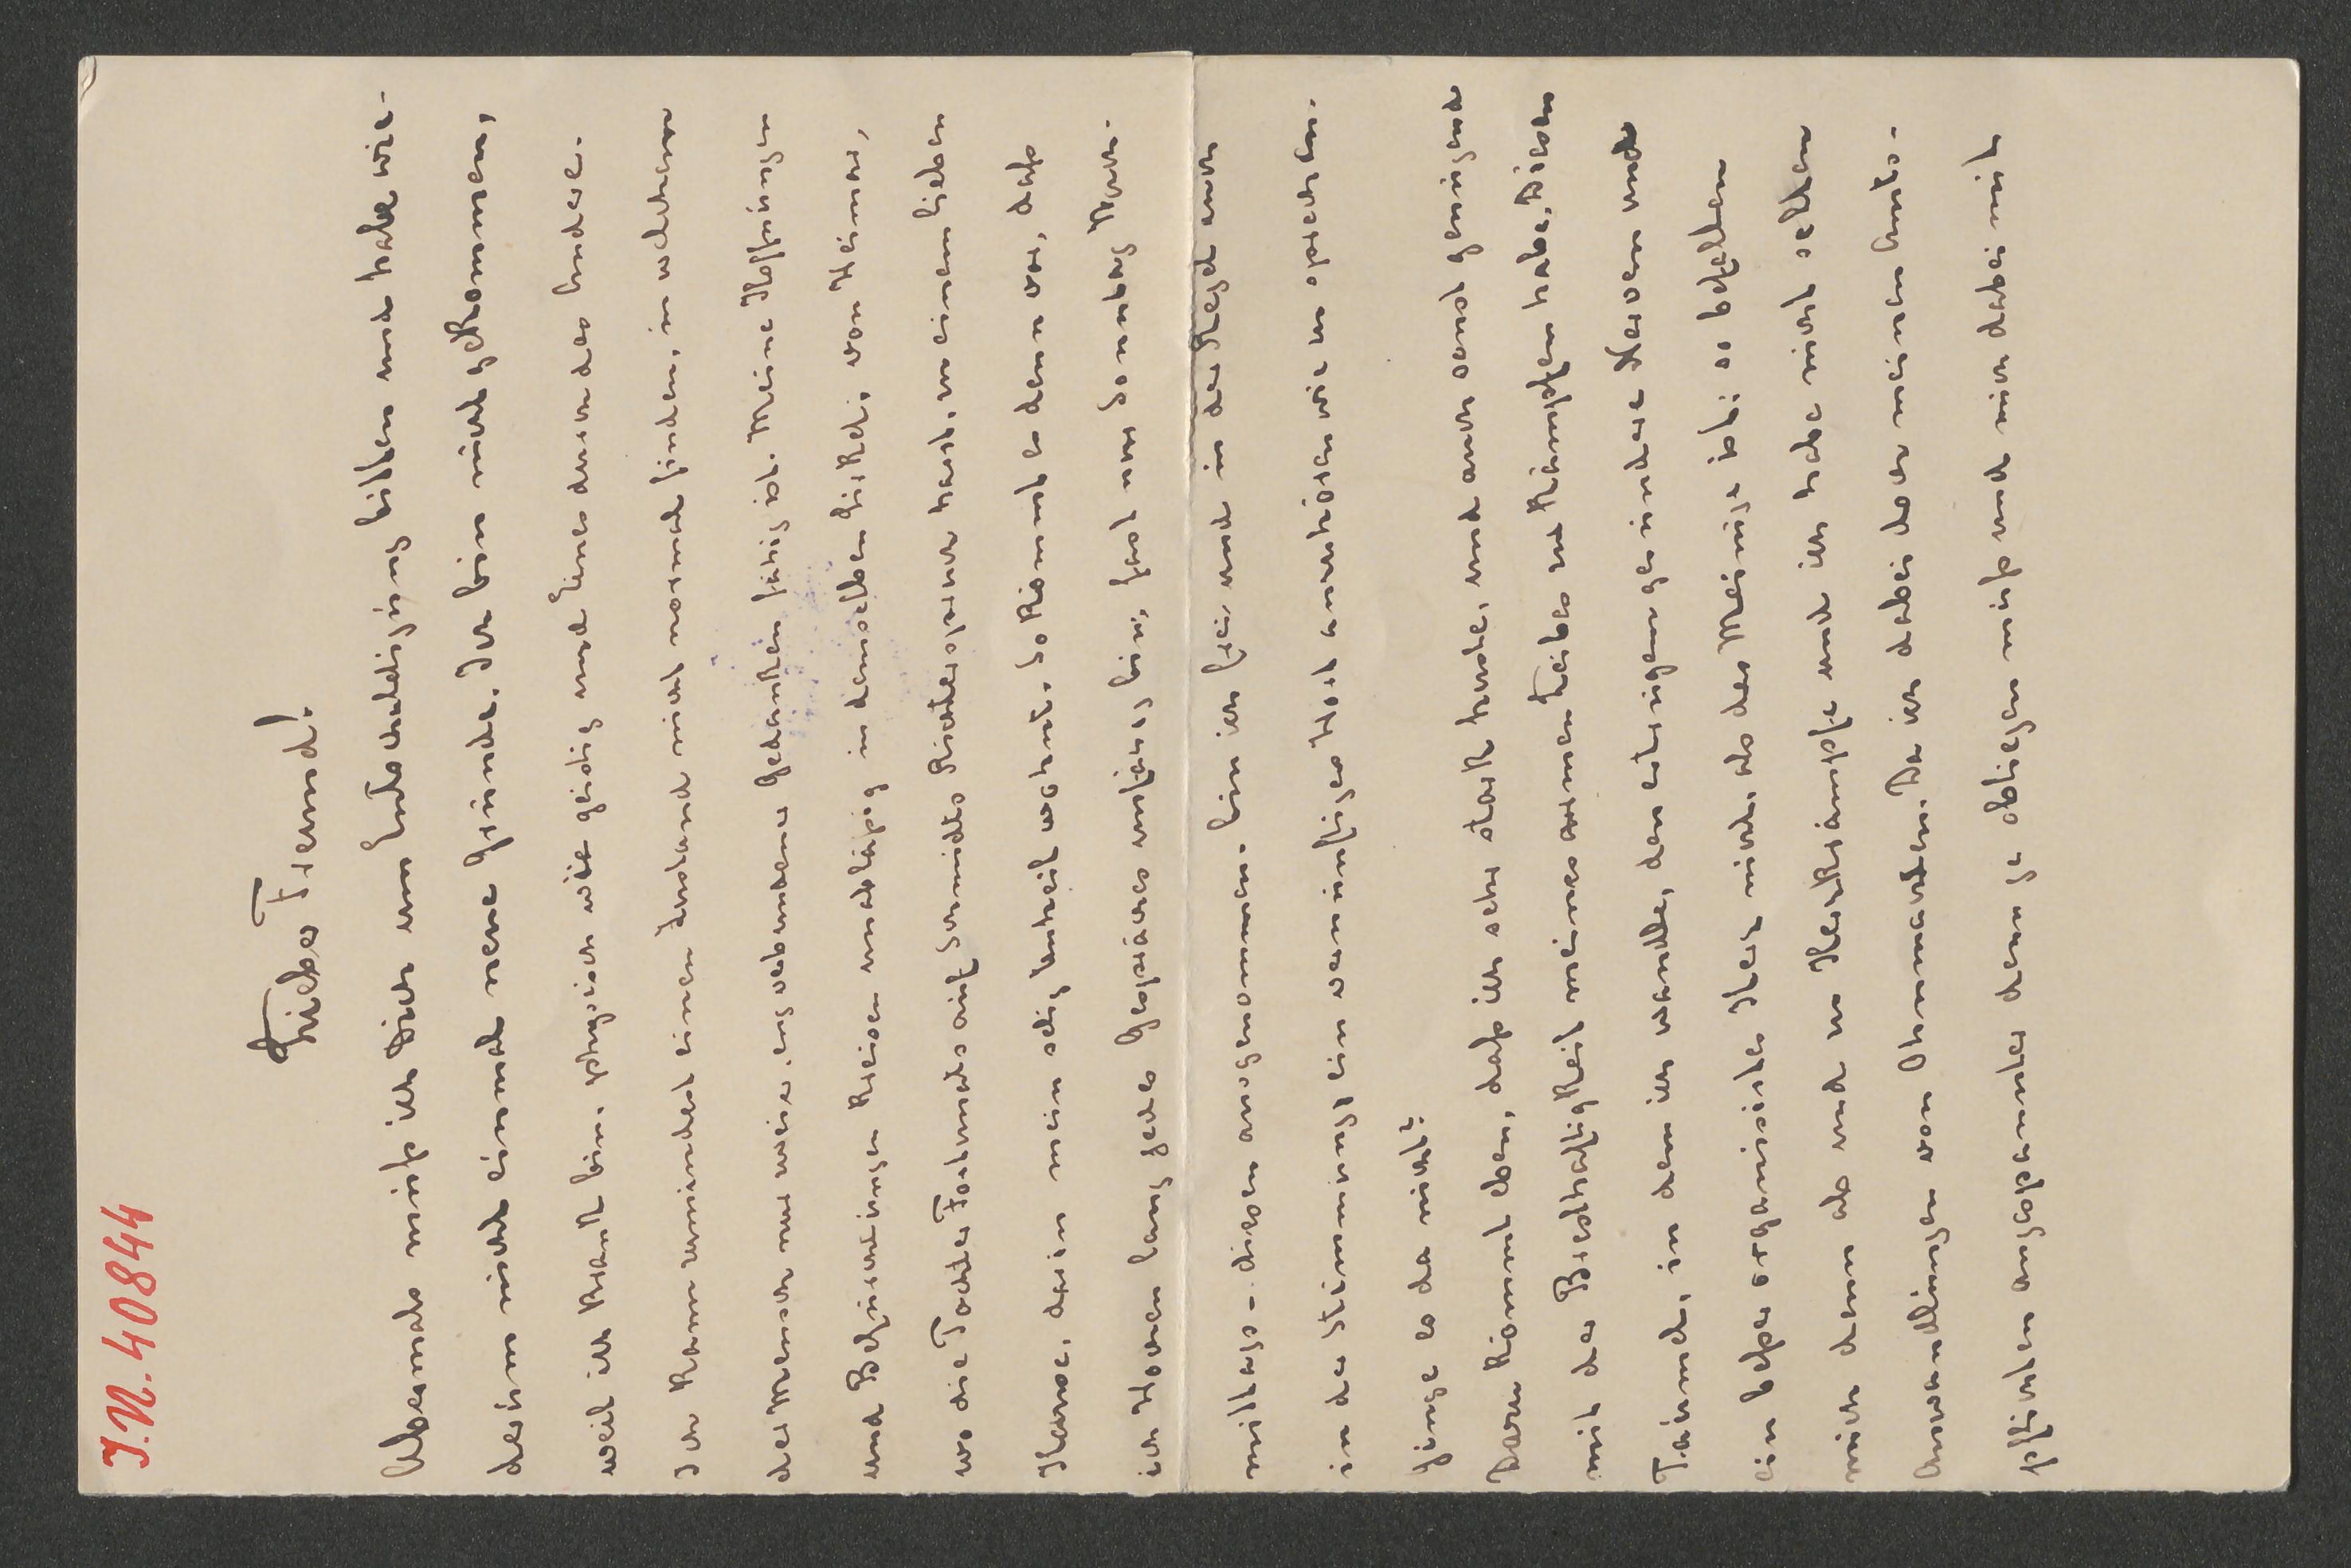 I.N. 40844
Lieber Freund!
Abermals muß ich Dich um Entschuldigung bitten und habe wie-
derum nicht einmal neue Gründe. Ich bin nicht gekommen,
weil ich krank bin, physisch wie geistig und Eines durch das Andere.
Ich kann zumindest einen Zustand nicht normal finden, in welchem
der Mensch nur zweier, eng verbundener Gedanken fähig ist. Meine Hoffnungen
und Befürchtungen kreisen unablässig in demselben Zirkel, von
wo die Tochter Fortunats einst Schmidts Richterspruch harrt, zu einem lieben
Hause, darin mein selig Antheil wohnt. So kommt es denn vor, daß
ich lang jedes Gespräches unfähig bin; fast nur Sonntag Nach-
mittags – diesen ausgenommen – bin ich frei, und in der Regel auch
in der Stimmung, ein vernünftiges Wort anzuhören wie zu sprechen.
Ginge es da nicht?
Dazu kommt eben, daß ich sehr stark huste, und auch sonst genügend
mit der Bresthaftigkeit meines armen Leibes zu kämpfen habe. Diesen
in dem ich wandle, den ertrügen gesündere Nerven und
ein besser organisirtes Herz nicht, als das Meinige ist; es befallen
mich denn ab und zu Herzkrämpfe und ich habe nicht selten
Anwandlungen von Ohnmachten. Da ich dabei doch meinen Amts-
pflichten angespannter denn je obliegen muß und mich dabei mit